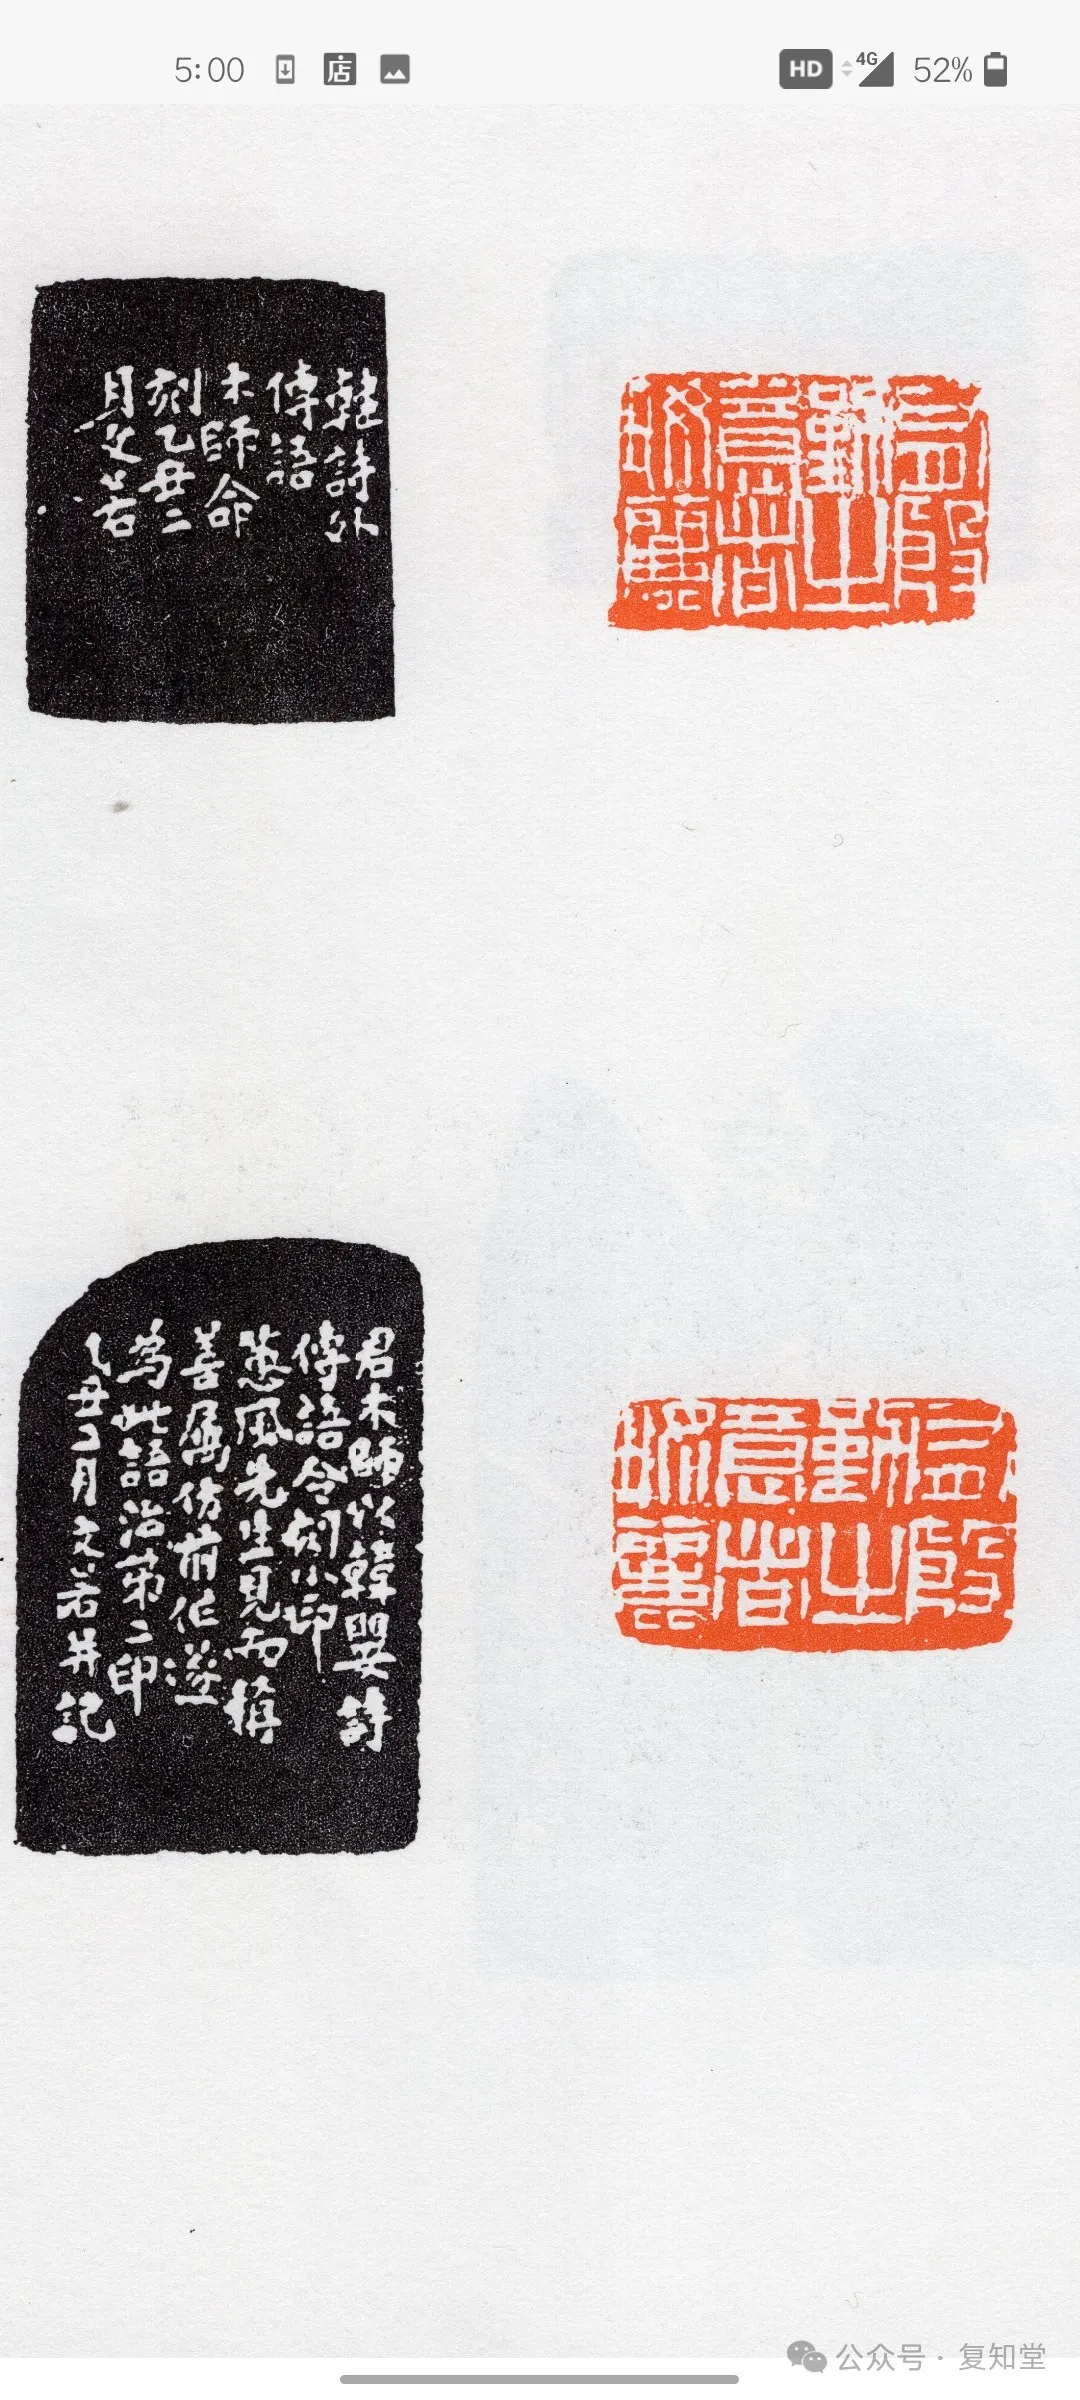 5:00 店 HD 4G 52%
韓詩外
傳語
木師命
刻乙丑二
月文若
君木師以韓嬰詩
傳語令刻小印
蕙風先生見而稱
善屬仿前作遂
為此語治第二印
乙丑二月文若并記
公众号 · 复知堂